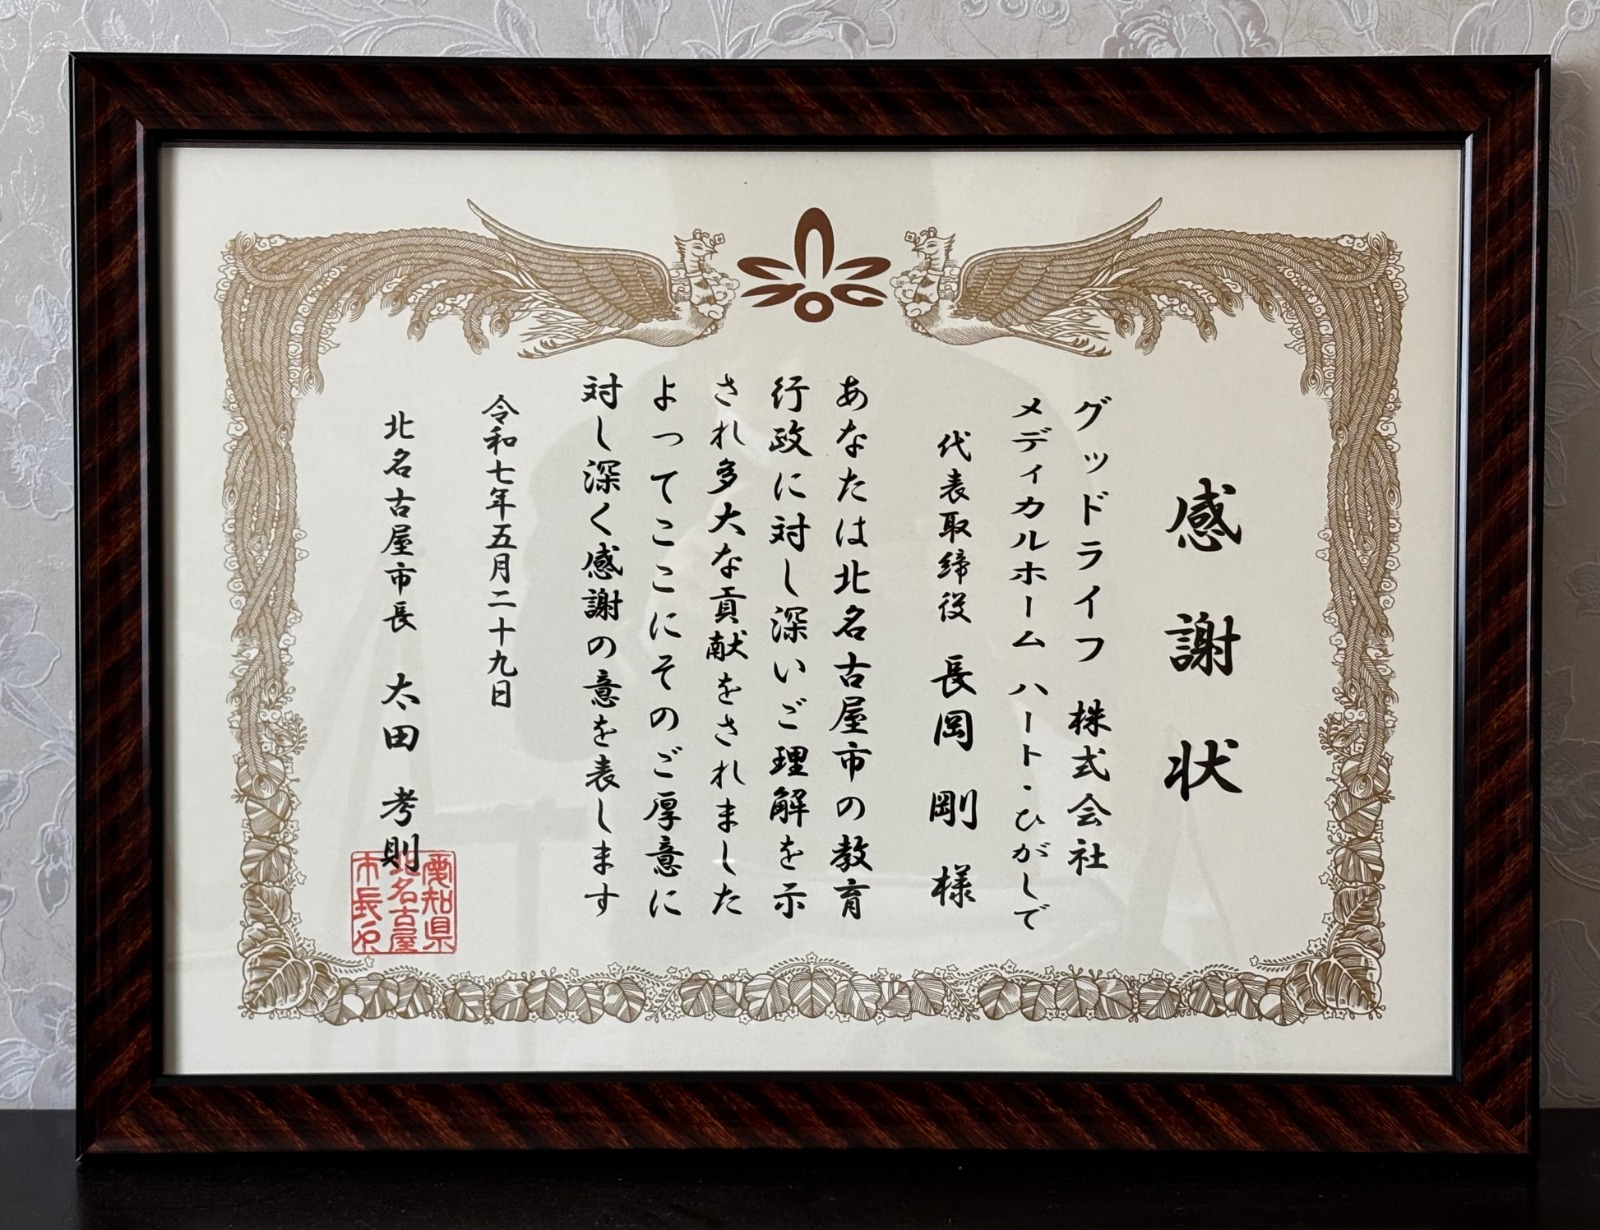 感謝状
グッドライフ 株式会社
メディカルホーム ハート・ひがしで
代表取締役 長岡 剛 様
あなたは北名古屋市の教育
行政に対し深いご理解を示
され多大な貢献をされました
よってここにそのご厚意に
対し深く感謝の意を表します
令和七年五月二十九日
北名古屋市長 太田 考則
愛知県
北名古屋
市長之印